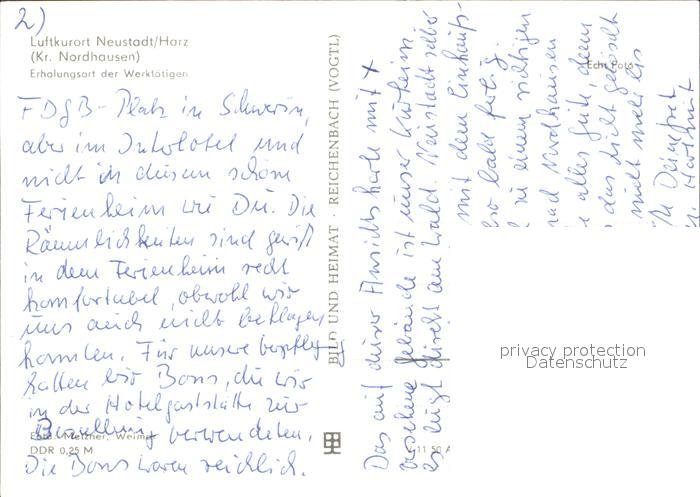 2)
Luftkurort Neustadt/Harz
(Kr. Nordhausen)
Erholungsort der Werktätigen
FDGB-Platz in Schwerin,
aber im Interhotel und
nicht in diesem schönen
Ferienheim wie Du. Die
Räumlichkeiten sind gewiß
in dem Ferienheim recht
komfortabel, obwohl wir
uns auch nicht beklagen
konnten. Für unsere Verpflegung
hatten wir Bons, die wir
in der Hotelgaststätte zur
Bezahlung verwendeten.
Die Bons waren reichlich.
Foto: Metzner, Weimar
DDR 0,25 M
BILD UND HEIMAT · REICHENBACH (VOGTL)
Echt Foto
Das auf dieser Ansichtskarte mit x
versehene Gebäude ist unser Kurheim.
Es liegt direkt am Wald. Neustadt
mit dem Einkaufs-
bald fertig.
in einem richtigen
Nordhausen
alles Gute, dem
das nicht gelöscht
nicht mehr
11 50 A
privacy protection
Datenschutz